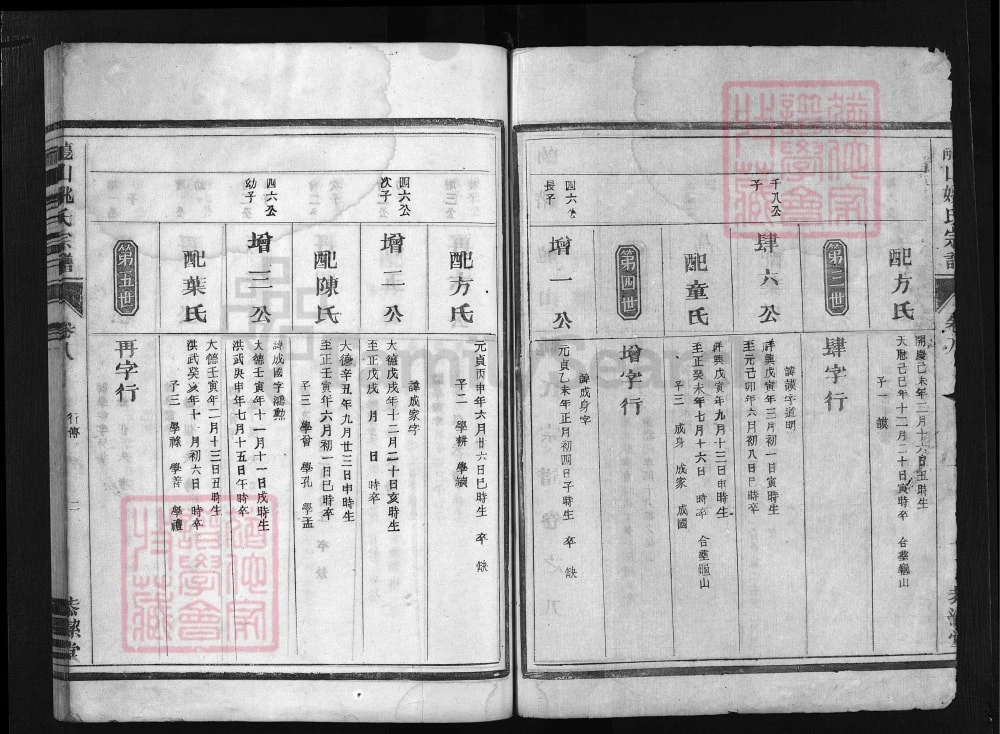 配方氏
開慶己未年二月十六日丑時生
天曆己巳年十二月二十日寅時卒 合塟龜山
子一 謨
第三世
肆字行
千八公
子
肆六公
諱謨字道明
祥興戊寅年三月初一日寅時生
至元己卯年六月初八日巳時卒
配童氏
祥興戊寅年九月十三日申時生
至正癸未年七月十六日 時卒 合塟龜山
子三 成身 成家 成國
第四世
增字行
四六公
長子
增一公
諱成身字
元貞乙未年正月初四日子時生 卒 缺
配方氏
元貞丙申年六月廿六日巳時生 卒 缺
子二 學耕 學讀
四六公
次子
增二公
諱成家字
大德戊戌年十二月二十日亥時生
至正戊戌 月 日 時卒
配陳氏
大德辛丑年九月廿三日申時生
至正壬寅年六月初一日巳時卒
子三 學曾 學孔 學孟
四六公
幼子
增三公
諱成國字鴻勲
大德壬寅年十一月十一日戌時生
洪武庚申年七月十五日午時卒
配葉氏
大德壬寅年二月十三日丑時生
洪武癸亥年十一月初六日 時卒
子三 學祿 學善 學禮
第五世
再字行
山姚氏宗譜
卷八
行傳
二